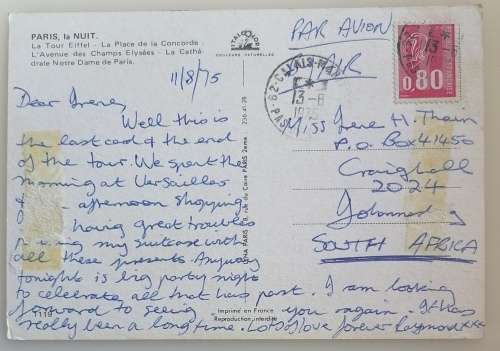 PARIS, la NUIT.
La Tour Eiffel - La Place de la Concorde -
L'Avenue des Champs Elysées - La Cathé-
drale Notre Dame de Paris.
11/8/75
Dear Irene,
Well this is
the last card of the end
of the tour. We spent the
morning at Versailles
afternoon shopping
having great troubles
my suitcase with
all these presents. Anyway
tonight is big party night
to celebrate all that has past. I am looking
forward to seeing you again. It has
really been a long time. Lots of love forever Raymond xxx
COULEURS NATURELLES
rue du Caire PARIS 2ème
Imprimé en France
Reproduction interdite
PAR AVION
AIR
62-CALAIS
13-8
1975
0,80
Miss Irene H. Tham
P.O. Box 41450
Craighall
2024
Johannesburg
SOUTH AFRICA